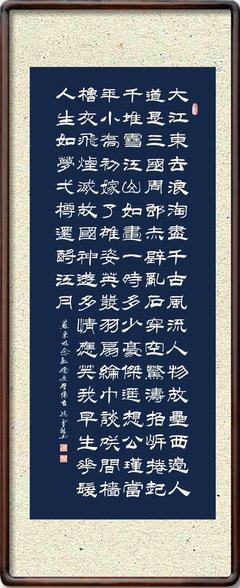 大江東去浪淘盡千古風流人物故壘西邊人
道是三國周郎赤壁亂石穿空驚濤拍岸捲起
千堆雪江山如畫一時多少豪傑遙想公瑾當
年小喬初嫁了雄姿英發羽扇綸巾談笑間檣
櫓灰飛煙滅故國神遊多情應笑我早生華髮
人生如夢弌樽還酹江月
蘇東坡念奴嬌赤壁懷古